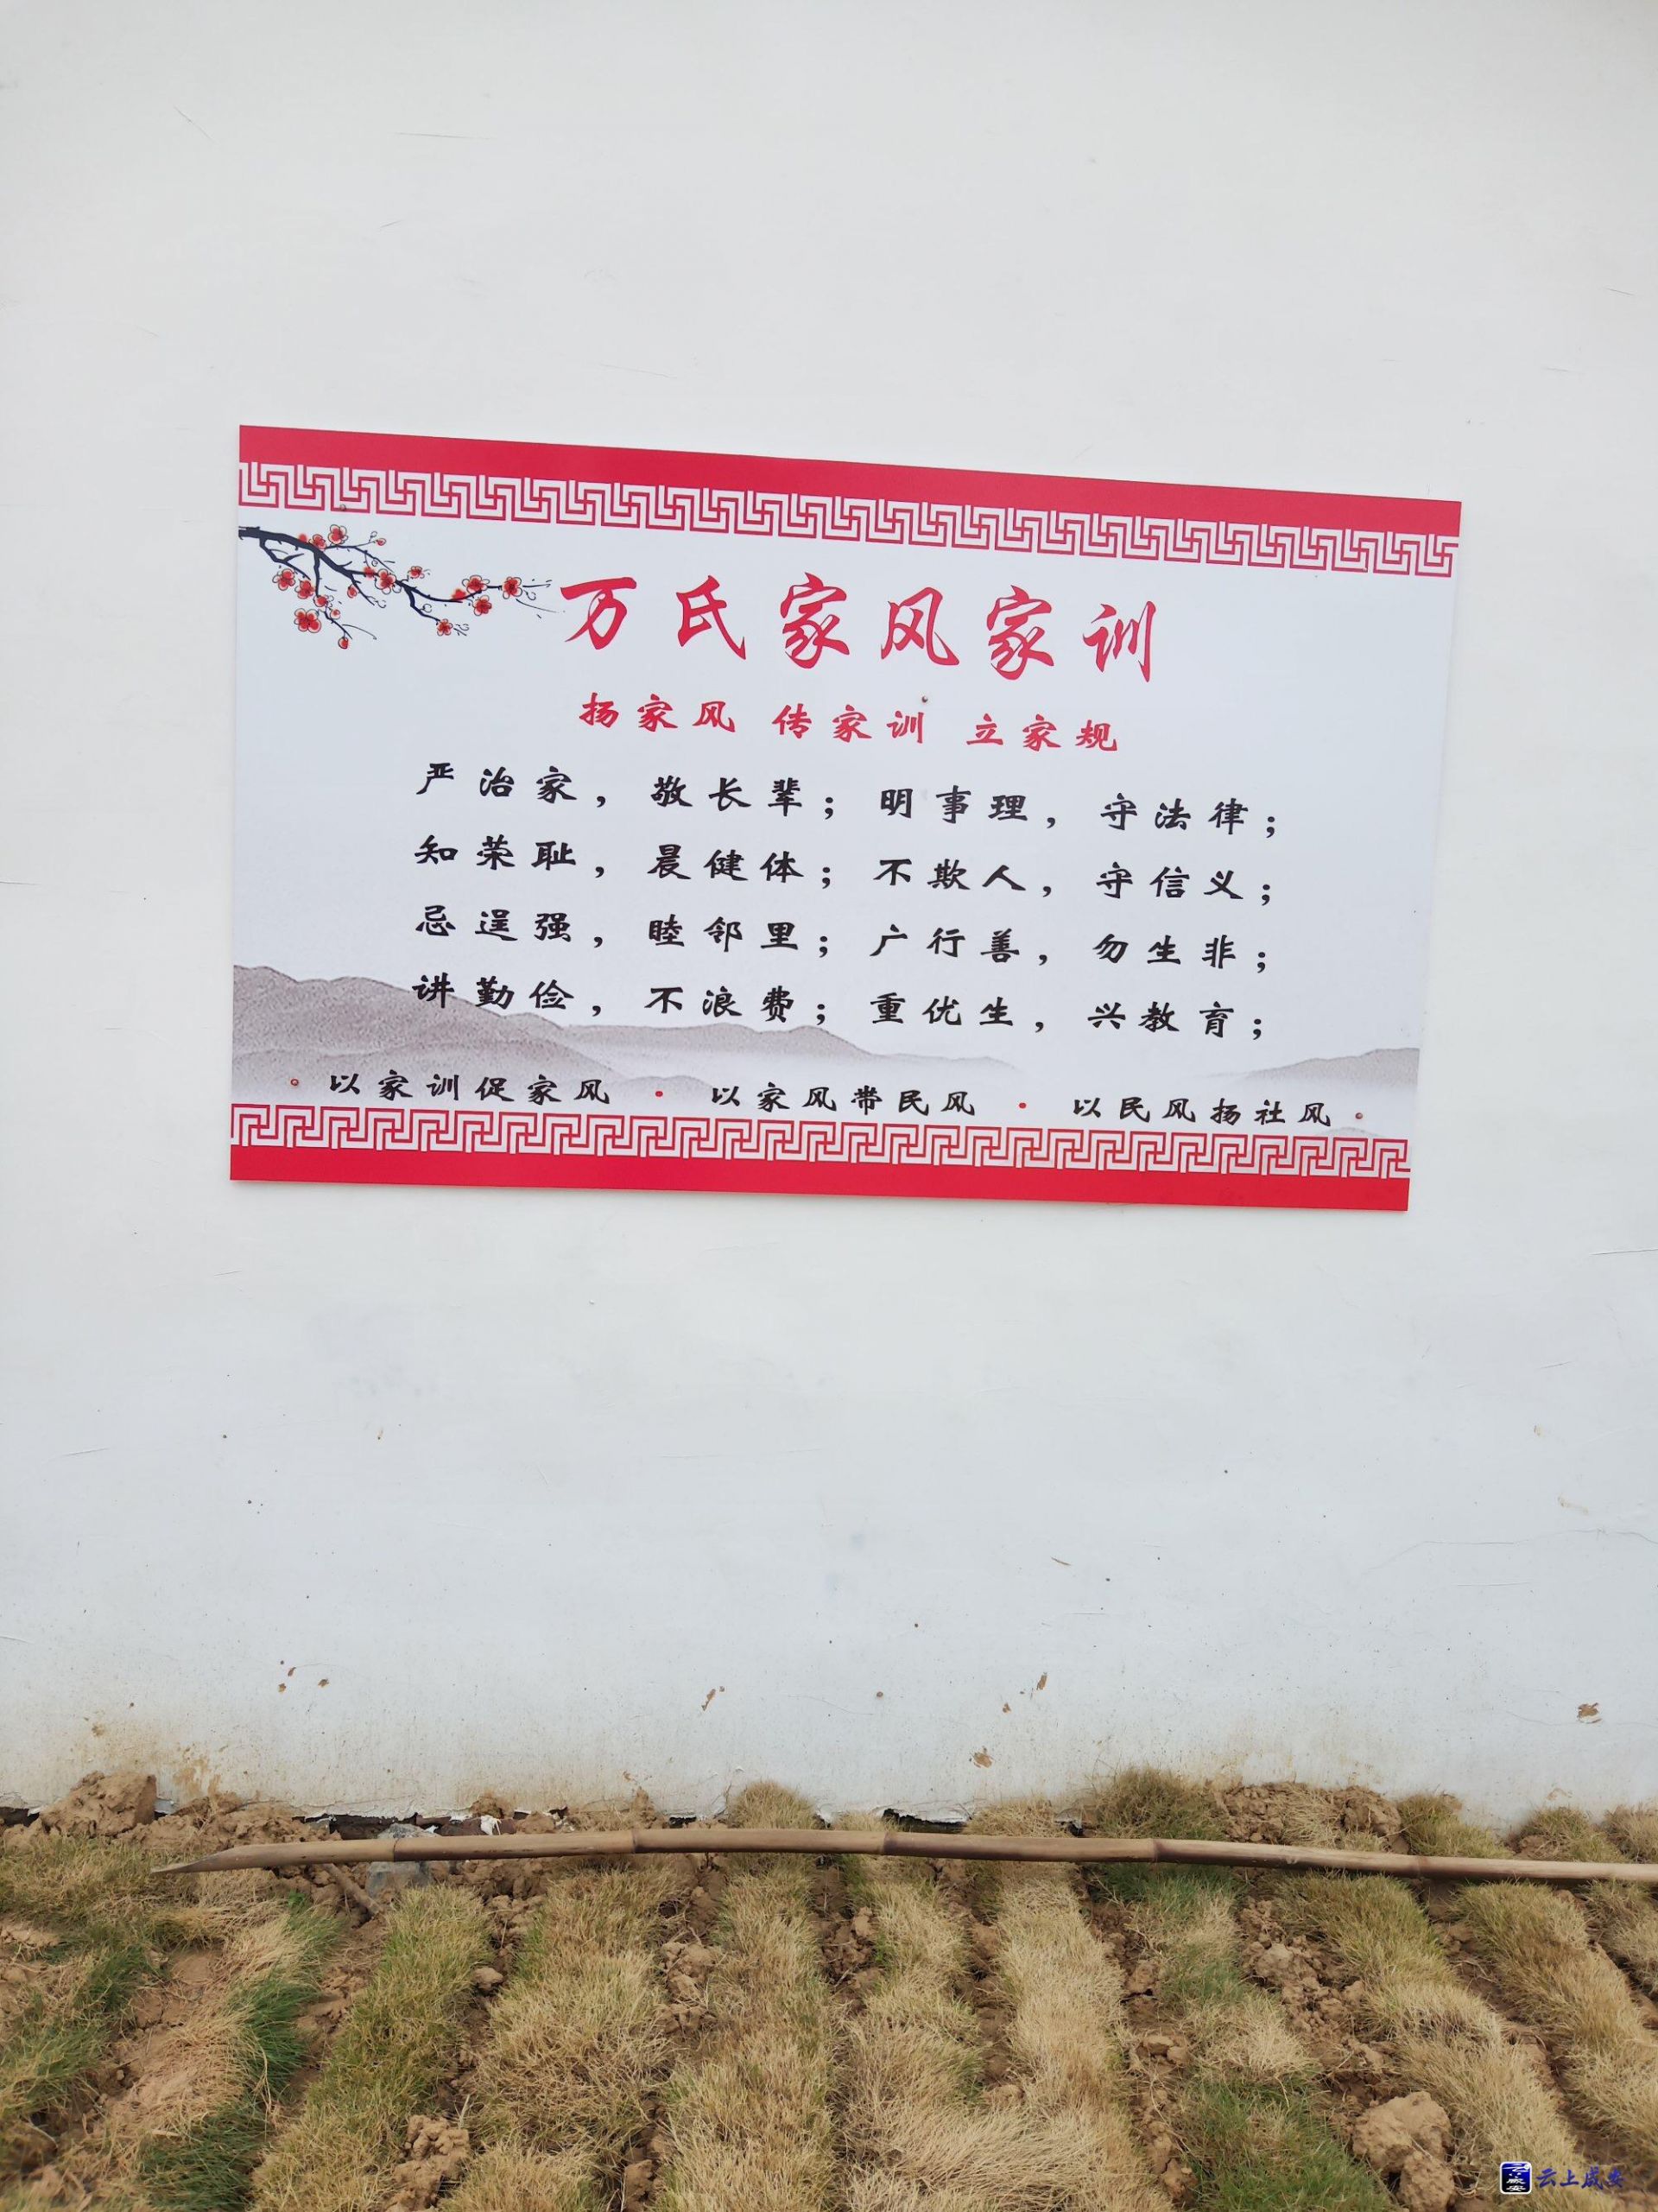 万氏家风家训
扬家风 传家训 立家规
严治家，敬长辈；明事理，守法律；
知荣耻，晨健体；不欺人，守信义；
忌逞强，睦邻里；广行善，勿生非；
讲勤俭，不浪费；重优生，兴教育；
·以家训促家风 · 以家风带民风 · 以民风扬社风·
云上咸安